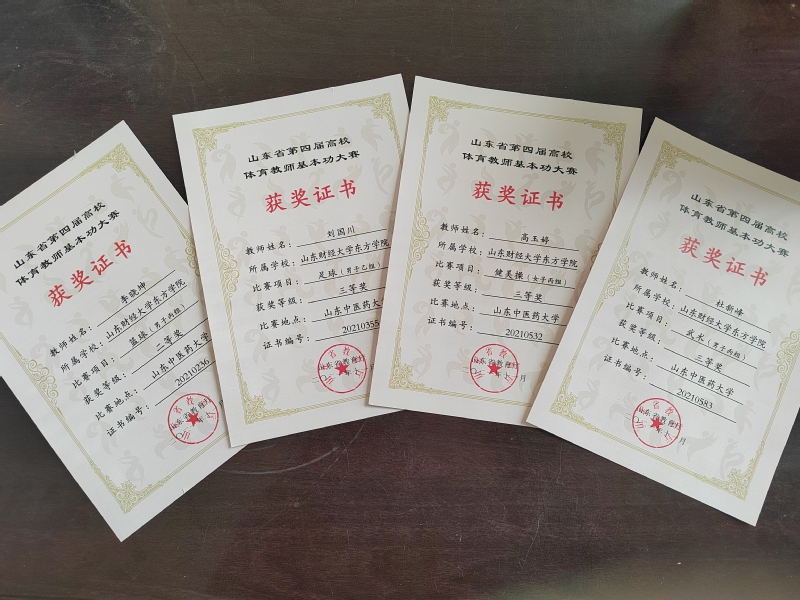 山东省第四届高校
体育教师基本功大赛
获奖证书
教师姓名: 李晓坤
所属学校: 山东财经大学东方学院
比赛项目: 篮球(男子丙组)
获奖等级: 二等奖
比赛地点: 山东中医药大学
证书编号: 20210236
山东省第四届高校
体育教师基本功大赛
获奖证书
教师姓名: 刘国川
所属学校: 山东财经大学东方学院
比赛项目: 足球(男子乙组)
获奖等级: 三等奖
比赛地点: 山东中医药大学
证书编号: 20210355
山东省教育厅
山东省第四届高校
体育教师基本功大赛
获奖证书
教师姓名: 高玉婷
所属学校: 山东财经大学东方学院
比赛项目: 健美操(女子丙组)
获奖等级: 三等奖
比赛地点: 山东中医药大学
证书编号: 20210532
山东省教育厅
山东省第四届高校
体育教师基本功大赛
获奖证书
教师姓名: 杜新峰
所属学校: 山东财经大学东方学院
比赛项目: 武术(男子丙组)
获奖等级: 三等奖
比赛地点: 山东中医药大学
证书编号: 20210583
山东省教育厅